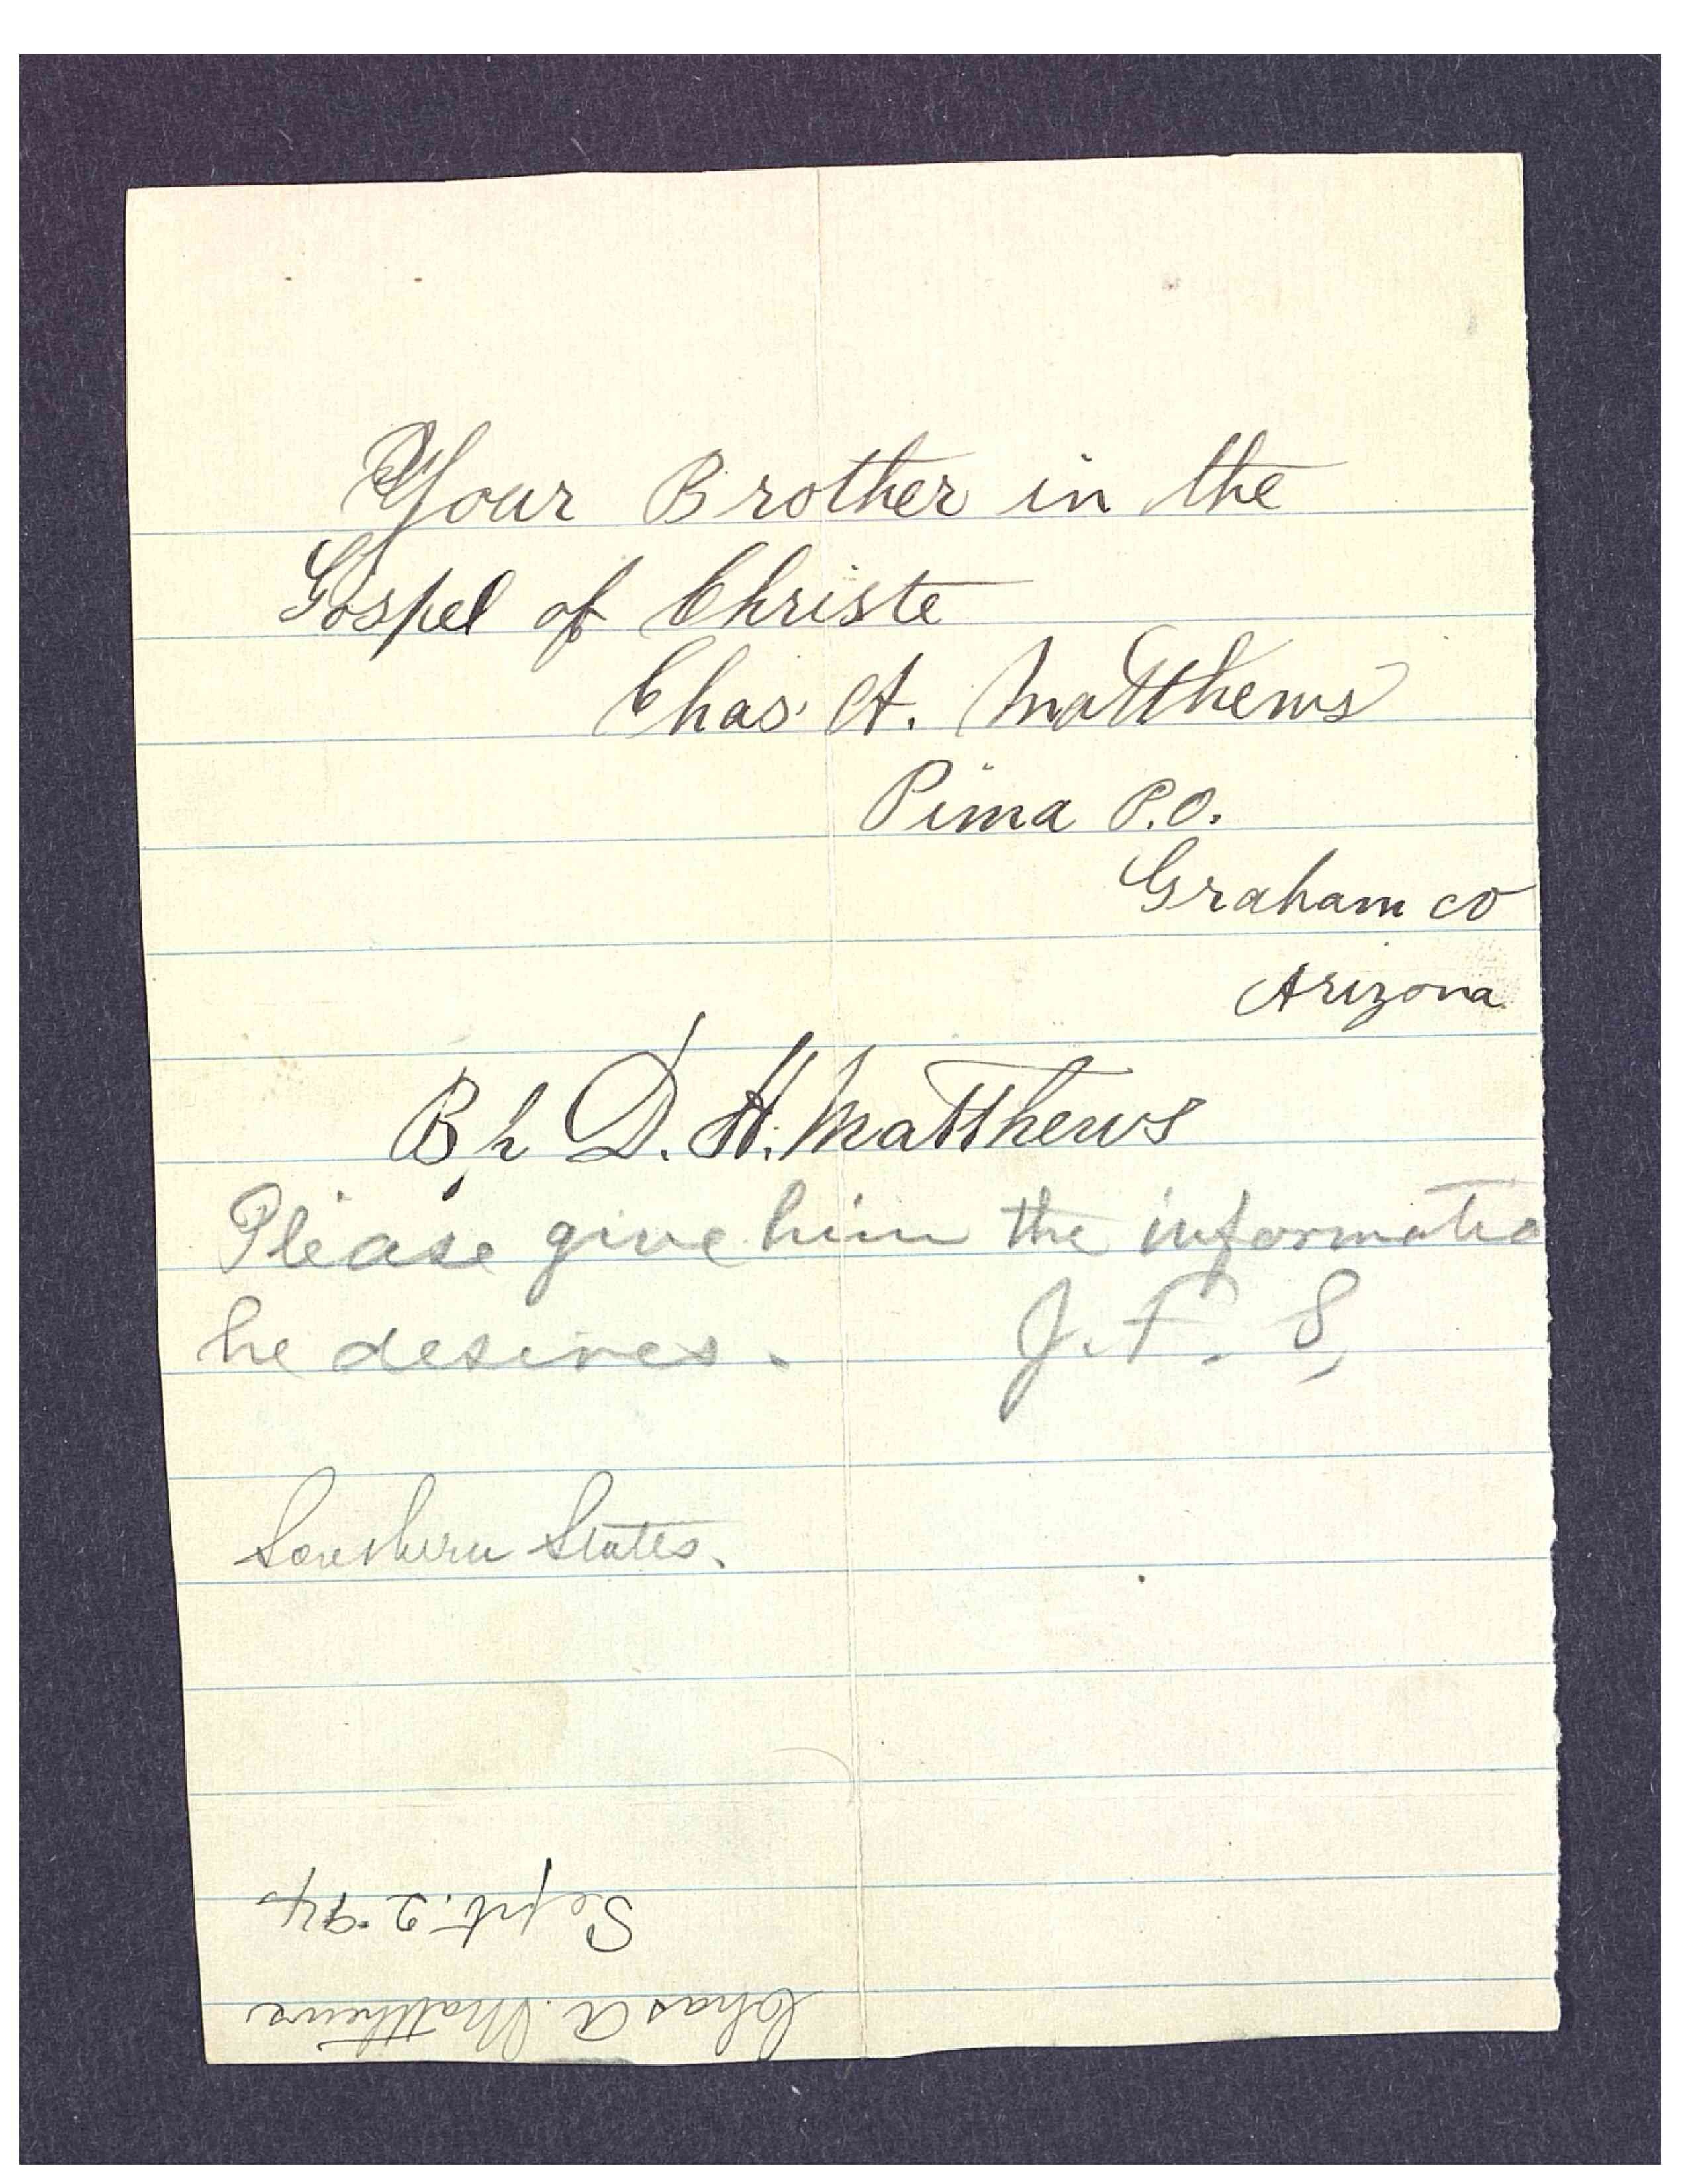 Your Brother in the
Gospel of Christe
Chas. A. Matthews
Pima P.O.
Graham co
Arizona
Bp D. H. Matthews
Please give him the informatio
he desires. J. F. S,
Southern States.
Chas A. Matthews
Sept. 2. 94